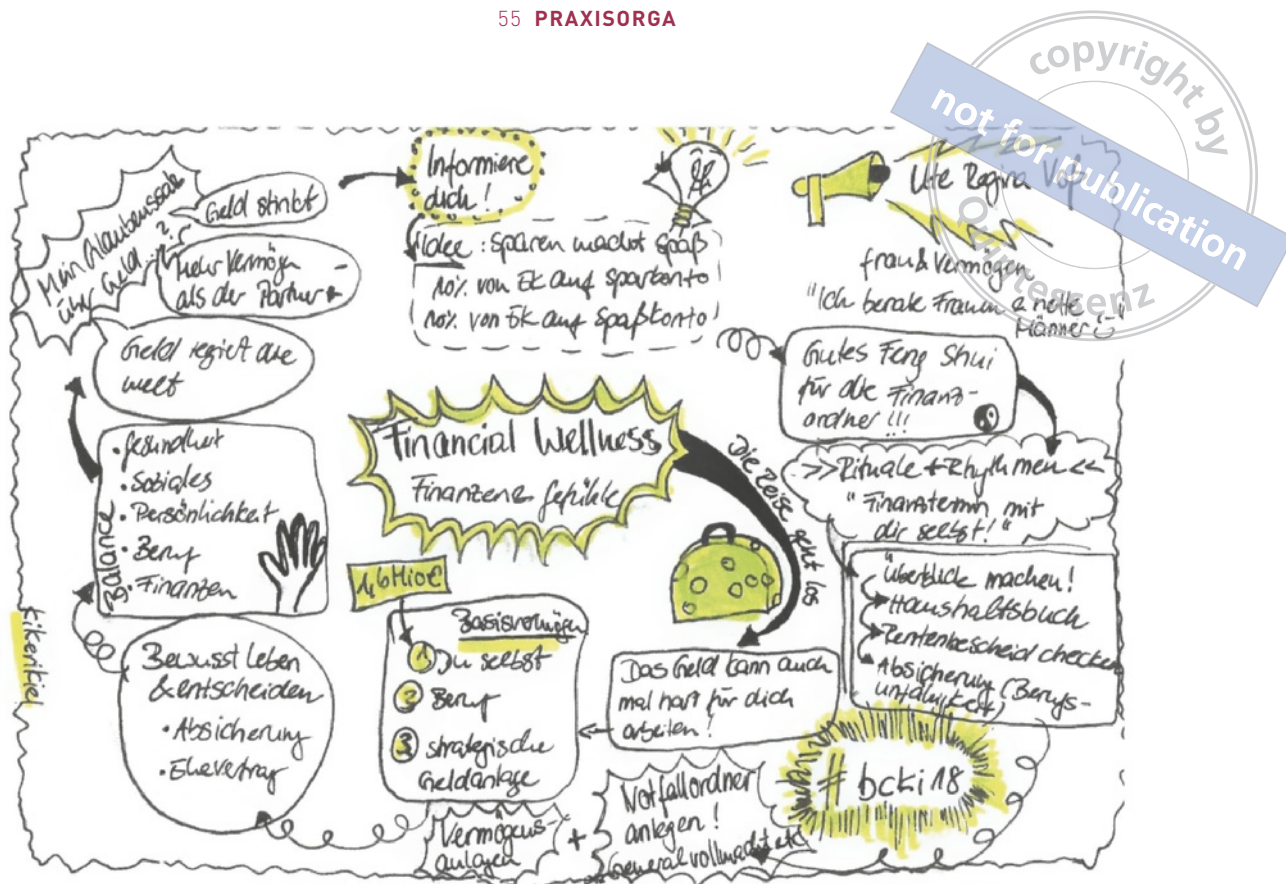 55 PRAXISORGA
copyright by
not for publication
Quintessenz
Mein Glaubenssatz
über Geld...?
Geld stinkt
Mehr Vermögen
als der Partner
Geld regiert die
Welt
Informiere
dich!
Idee: Sparen macht Spaß
10% von EK auf Sparkonto
10% von EK auf Spaßkonto
Ute Regina
frau & Vermögen
"Ich berate Frauen & nette
Männer"
Gutes Feng Shui
für die Finanz-
ordner!!!
>>Rituale + Rhythmen<<
"Finanztermin mit
dir selbst!"
Überblick machen!
Haushaltsbuch
Rentenbescheid checken
Absicherung (Berufs-
unfähigkeit)
Financial Wellness
Finanzen & Gefühle
Die Reise geht los
Balance
• Gesundheit
• Soziales
• Persönlichkeit
• Beruf
• Finanzen
1,6 Mio €
Basisvermögen
1. Du selbst
2 Beruf
3 strategische
Geldanlage
Das Geld kann auch
mal hart für dich
arbeiten!
Bewusst leben
& entscheiden
• Absicherung
• Ehevertrag
kikerikiel
Vermögens-
anlagen
+
Notfallordner
anlegen!
Generalvollmacht etc
# bcki18